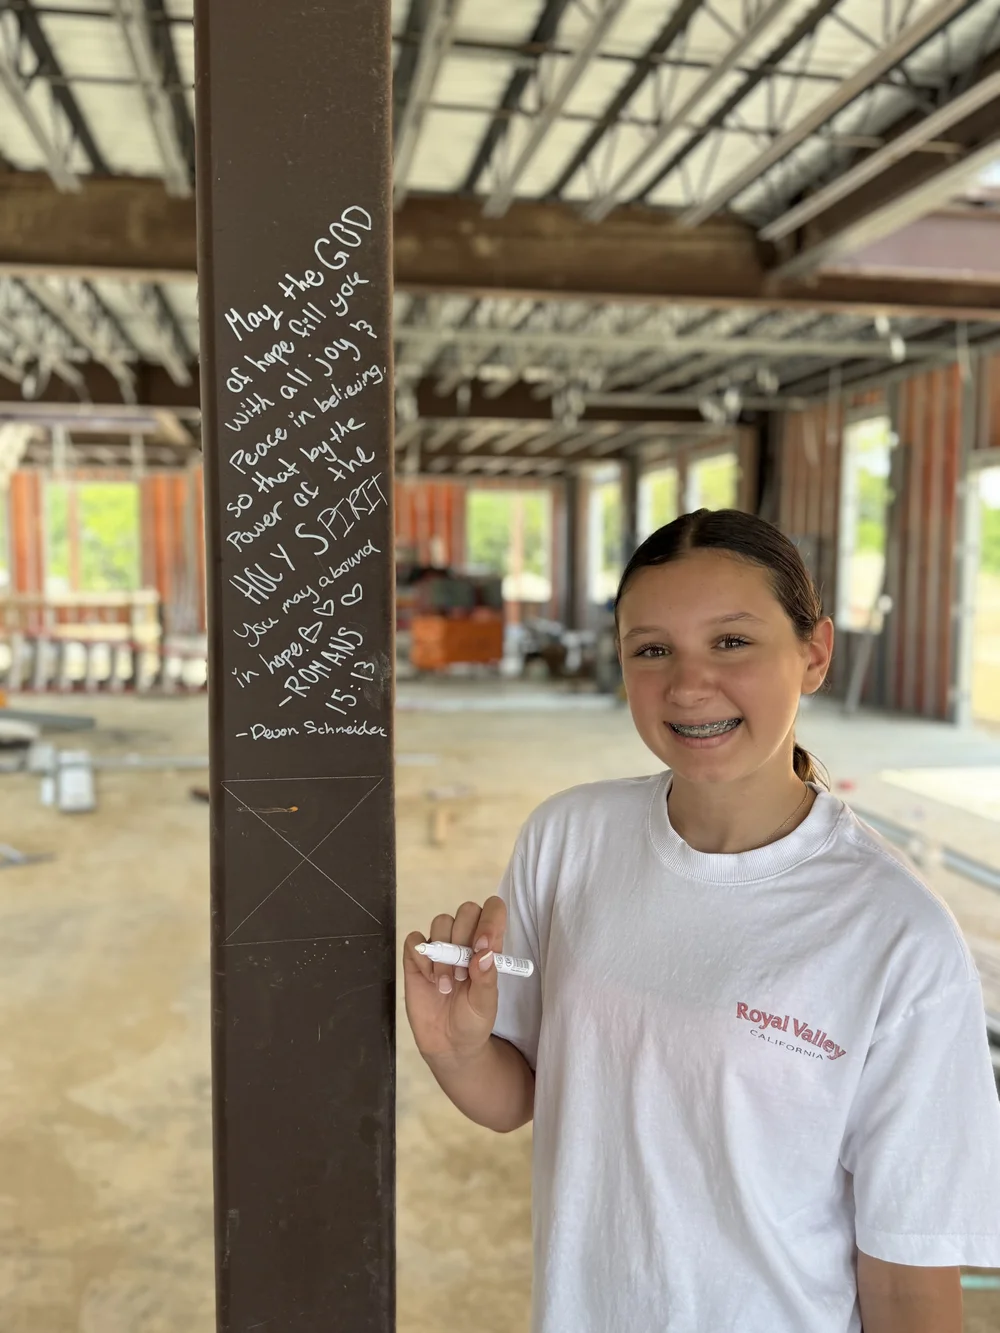 May the GOD
of hope fill you
with all joy &
Peace in believing,
so that by the
Power of the
HOLY SPIRIT
You may abound
in hope. ♡♡♡
-ROMANS
15:13
-Devon Schneider
Royal Valley
CALIFORNIA